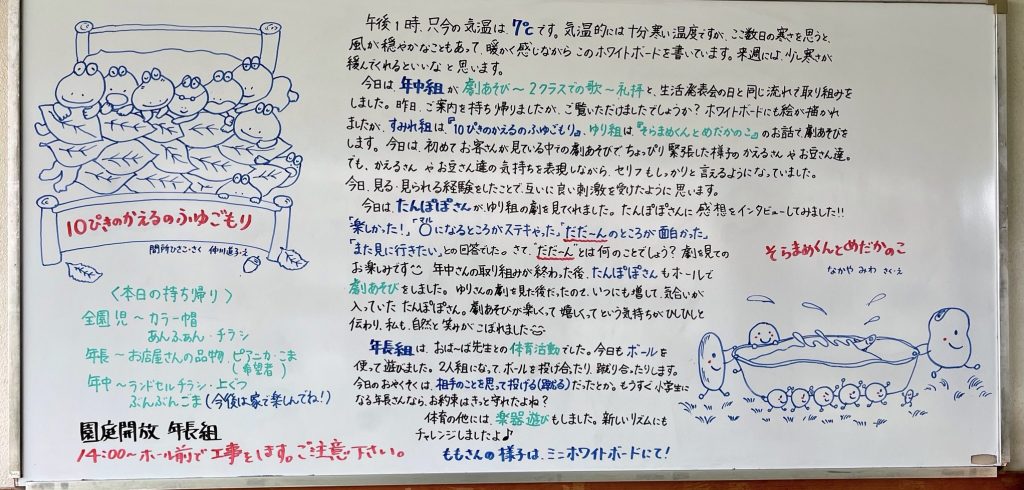 10ぴきのかえるのふゆごもり
間所ひさこ・さく 仲川道子・え
〈本日の持ち帰り〉
全園児〜カラー帽
あんふぁん・チラシ
年長〜お店屋さんの品物・ピアニカ・こま
(希望者)
年中〜ランドセルチラシ・上ぐつ
ぶんぶんごま(今後は家で楽しんでね!)
園庭開放 年長組
14:00〜ホール前で工事をします。ご注意下さい。
午後1時、只今の気温は、7℃です。気温的には十分寒い温度ですが、ここ数日の寒さを思うと、
風が穏やかなこともあって、暖かく感じながらこのホワイトボードを書いています。来週には、少し寒さが
緩んでくれるといいなと思います。
今日は、年中組が劇あそび〜2クラスでの歌〜礼拝と、生活発表会の日と同じ流れで取り組みを
しました。昨日、ご案内を持ち帰りましたが、ご覧いただけましたでしょうか?ホワイトボードにも絵が描かれ
ましたが、すみれ組は、『10ぴきのかえるのふゆごもり』、ゆり組は『そらまめくんとめだかのこ』のお話で劇あそびを
します。今日は、初めてお客さんが見ている中での劇あそびでちょっぴり緊張した様子のかえるさんやお豆さん達。
でも、かえるさんやお豆さん達の気持ちを表現しながら、セリフもしっかりと言えるようになっていました。
今日、見る・見られる経験をしたことで、互いに良い刺激を受けたように思います。
今日は、たんぽぽさんが、ゆり組の劇を見てくれました。たんぽぽさんに感想をインタビューしてみました!!
「楽しかった!」「○マルになるところがステキやった」「だだーんのところが面白かった」
「また見に行きたい」との回答でした。さて、"だだーん"とは何のことでしょう?劇を見ての
お楽しみです 年中さんの取り組みが終わった後、たんぽぽさんもホールで
劇あそびをしました。ゆりさんの劇を見た後だったので、いつにも増して、気合いが
入っていたたんぽぽさん。劇あそびが楽しくって嬉しくってという気持ちがひしひしと
伝わり、私も、自然と笑みがこぼれました
年長組は、おば〜ば先生との体育活動でした。今日もボールを
使って遊びました。2人組になって、ボールを投げ合ったり、蹴り合ったりします。
今日のおやくそくは、相手のことを思って投げる(蹴る)だったとか。もうすぐ小学生に
なる年長さんなら、お約束はきっと守れたよね?
体育の他には、楽器遊びもしました。新しいリズムにも
チャレンジしましたよ♪
ももさんの様子は、ミニホワイトボードにて!
そらまめくんとめだかのこ
なかや みわ さく・え